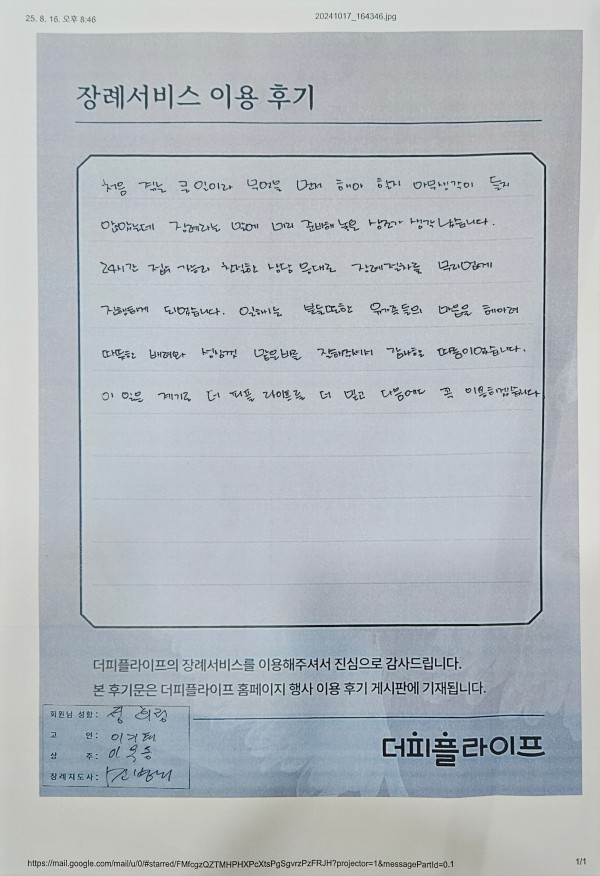 25. 8. 16. 오후 8:46
20241017_164346.jpg
장례서비스 이용 후기
처음 겪는 큰 일이라 무엇을 먼저 해야 할지 아무생각이 들지
않았는데 장례라는 말에 미리 준비해 놓은 상조가 생각 났습니다.
24시간 접수 가능과 친절한 상담 응대로 장례절차를 무리없게
진행하게 되었습니다. 일하시는 분들또한 유가족들의 마음을 헤아려
따뜻한 배려와 성심껏 맡은바를 진행해주셔서 감사할 따름이었습니다.
이 일을 계기로 더 피플 라이프를 더 믿고 다음에도 꼭 이용하겠습니다
더피플라이프의 장례서비스를 이용해주셔서 진심으로 감사드립니다.
본 후기문은 더피플라이프 홈페이지 행사 이용 후기 게시판에 기재됩니다.
회원님 성함:
고 인:
상 주:
장례지도사:
더피플라이프
https://mail.google.com/mail/u/0/#starred/FMfcgzQZTMHPHXPcXtsPgSgvrzPzFRJH?projector=1&messagePartId=0.1
1/1